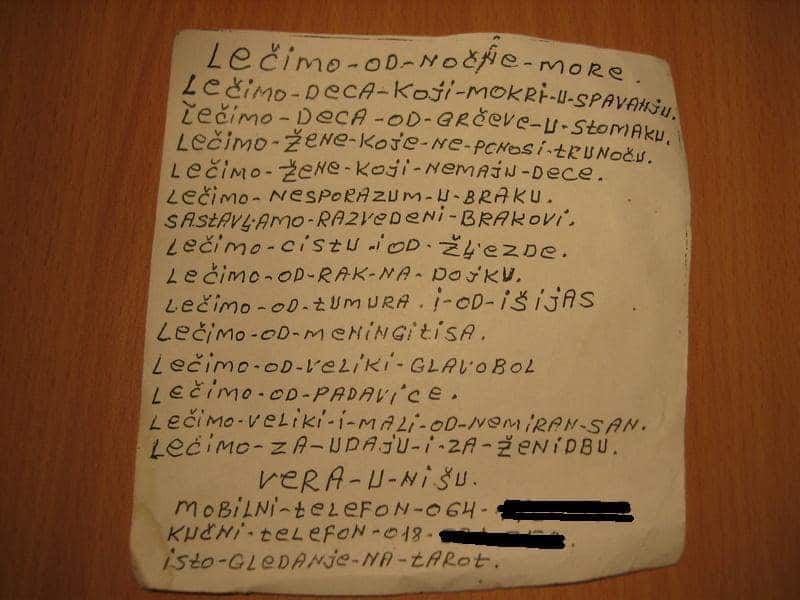 Lečimo-OD-NOČNe-MORe.
Lečimo-DeCA-KOJi-MOKRi-U-SPAVANJU.
Lečimo-DeCA-OD-GRČeve-U-STOMAKU.
Lečimo-ŽeNe-KOJe-Ne-PONOSi-tRUNOĆU.
Lečimo-ŽeNe-KOJi-NeMAJU-DeCe.
Lečimo-NeSPORAZUM-U-BRAKU.
SASTAVЏAMO-RAZVeDeNi-BRAKOVi.
Lečimo-CiStU-iOD-ŽЏeZDe.
Lečimo-OD-RAK-NA-DOJKU.
Lečimo-OD-tUMURA.i-OD-iŠiJAS
Lečimo-OD-MeNiNGitiSA.
Lečimo-OD-VeLiKi-GLAVOBOL
Lečimo-OD-PADAViCe.
Lečimo-VeLiKi-i-MALi-OD-NeMiRAN-SAN.
Lečimo-ZA-UDAJU-i-ZA-ŽeNiDBU.
VeRA-U-NiŠU.
MOBiLNi-teLeFON-064-
KUĆNi-teLeFON-018-
iStO-GLeDANJe-NA-tAROt.